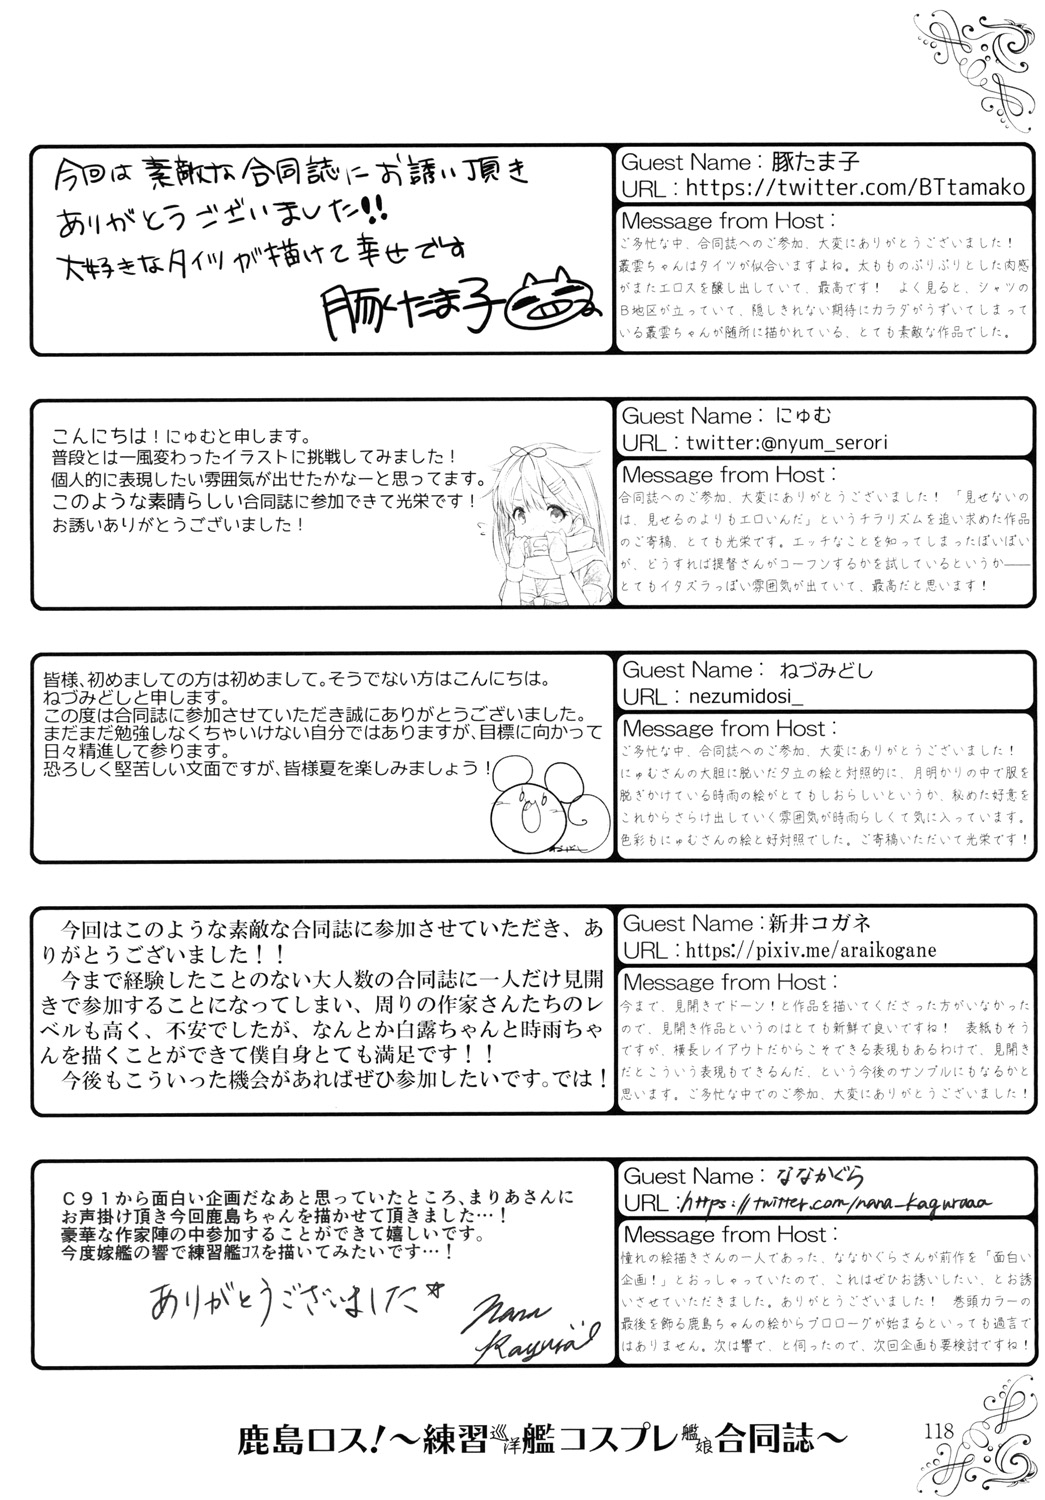 今回は素敵な合同誌にお誘い頂き
ありがとうございました!!
大好きなタイツが描けて幸せです
豚たま子
Guest Name：豚たま子
URL：https://twitter.com/BTtamako
Message from Host：
ご多忙な中、合同誌へのご参加、大変にありがとうございました！
叢雲ちゃんはタイツが似合いますよね。太もものぷりぷりとした肉感
がまたエロスを醸し出していて、最高です！　よく見ると、シャツの
B地区が立っていて、隠しきれない期待にカラダがうずいてしまって
いる叢雲ちゃんが随所に描かれている、とても素敵な作品でした。
こんにちは！にゅむと申します。
普段とは一風変わったイラストに挑戦してみました！
個人的に表現したい雰囲気が出せたかなーと思ってます。
このような素晴らしい合同誌に参加できて光栄です！
お誘いありがとうございました！
Guest Name：にゅむ
URL：twitter:@nyum_serori
Message from Host：
合同誌へのご参加、大変にありがとうございました！「見せないの
は、見せるのよりもエロいんだ」というチラリズムを追い求めた作品
のご寄稿、とても光栄です。エッチなことを知ってしまったぽいぽい
が、どうすれば提督さんがコーフンするかを試しているというか――
とてもイタズラっぽい雰囲気が出ていて、最高だと思います！
皆様、初めましての方は初めまして。そうでない方はこんにちは。
ねづみどしと申します。
この度は合同誌に参加させていただき誠にありがとうございました。
まだまだ勉強しなくちゃいけない自分ではありますが、目標に向かって
日々精進して参ります。
恐ろしく堅苦しい文面ですが、皆様夏を楽しみましょう！
ねづみどし
Guest Name：ねづみどし
URL：nezumidosi_
Message from Host：
ご多忙な中、合同誌へのご参加、大変にありがとうございました！
にゅむさんの大胆に脱いだ夕立の絵と対照的に、月明かりの中で服を
脱ぎかけている時雨の絵がとてもしおらしいというか、秘めた好意を
これからさらけ出していく雰囲気が時雨らしくて気に入っています。
色彩もにゅむさんの絵と好対照でした。ご寄稿いただいて光栄です！
今回はこのような素敵な合同誌に参加させていただき、あ
りがとうございました！！
今まで経験したことのない大人数の合同誌に一人だけ見開
きで参加することになってしまい、周りの作家さんたちのレ
ベルも高く、不安でしたが、なんとか白露ちゃんと時雨ちゃ
んを描くことができて僕自身とても満足です！！
今後もこういった機会があればぜひ参加したいです。では！
Guest Name：新井コガネ
URL：https://pixiv.me/araikogane
Message from Host：
今まで、見開きでドーン！と作品を描いてくださった方がいなかった
ので、見開き作品というのはとても新鮮で良いですね！　表紙もそう
ですが、横長レイアウトだからこそできる表現もあるわけで、見開き
だとこういう表現もできるんだ、という今後のサンプルにもなるかと
思います。ご多忙な中でのご参加、大変にありがとうございました！
C91から面白い企画だなあと思っていたところ、まりあさんに
お声掛け頂き今回鹿島ちゃんを描かせて頂きました…！
豪華な作家陣の中参加することができて嬉しいです。
今度嫁艦の響で練習艦ｺｽを描いてみたいです…！
ありがとうございました☆
Nana
Kagura
Guest Name：ななかぐら
URL：https://twitter.com/nana_kaguraaa
Message from Host：
憧れの絵描きさんの一人であった、ななかぐらさんが前作を「面白い
企画！」とおっしゃっていたので、これはぜひお誘いしたい、とお誘
いさせていただきました。ありがとうございました！　巻頭カラーの
最後を飾る鹿島ちゃんの絵からプロローグが始まるといっても過言で
はありません。次は響で、と伺ったので、次回企画も要検討ですね！
鹿島ロス!～練習巡洋艦コスプレ艦娘合同誌～
118